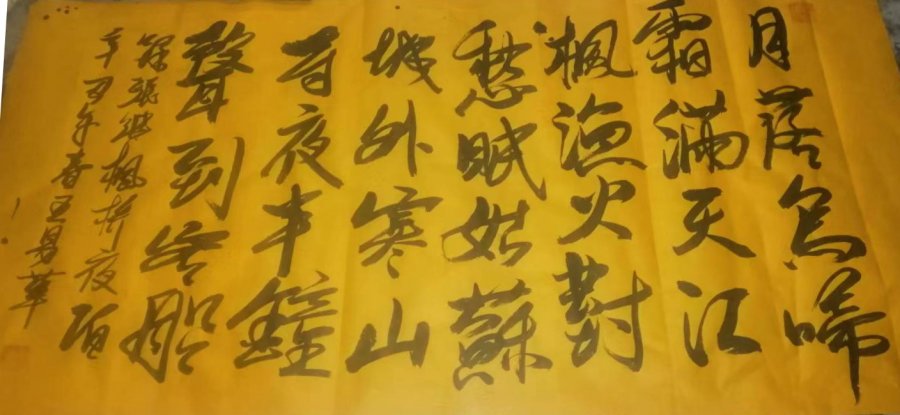 月落烏啼
霜滿天江
楓漁火對
愁眠姑蘇
城外寒山
寺夜半鐘
聲到客船
錄張继楓桥夜泊
辛丑年春王華